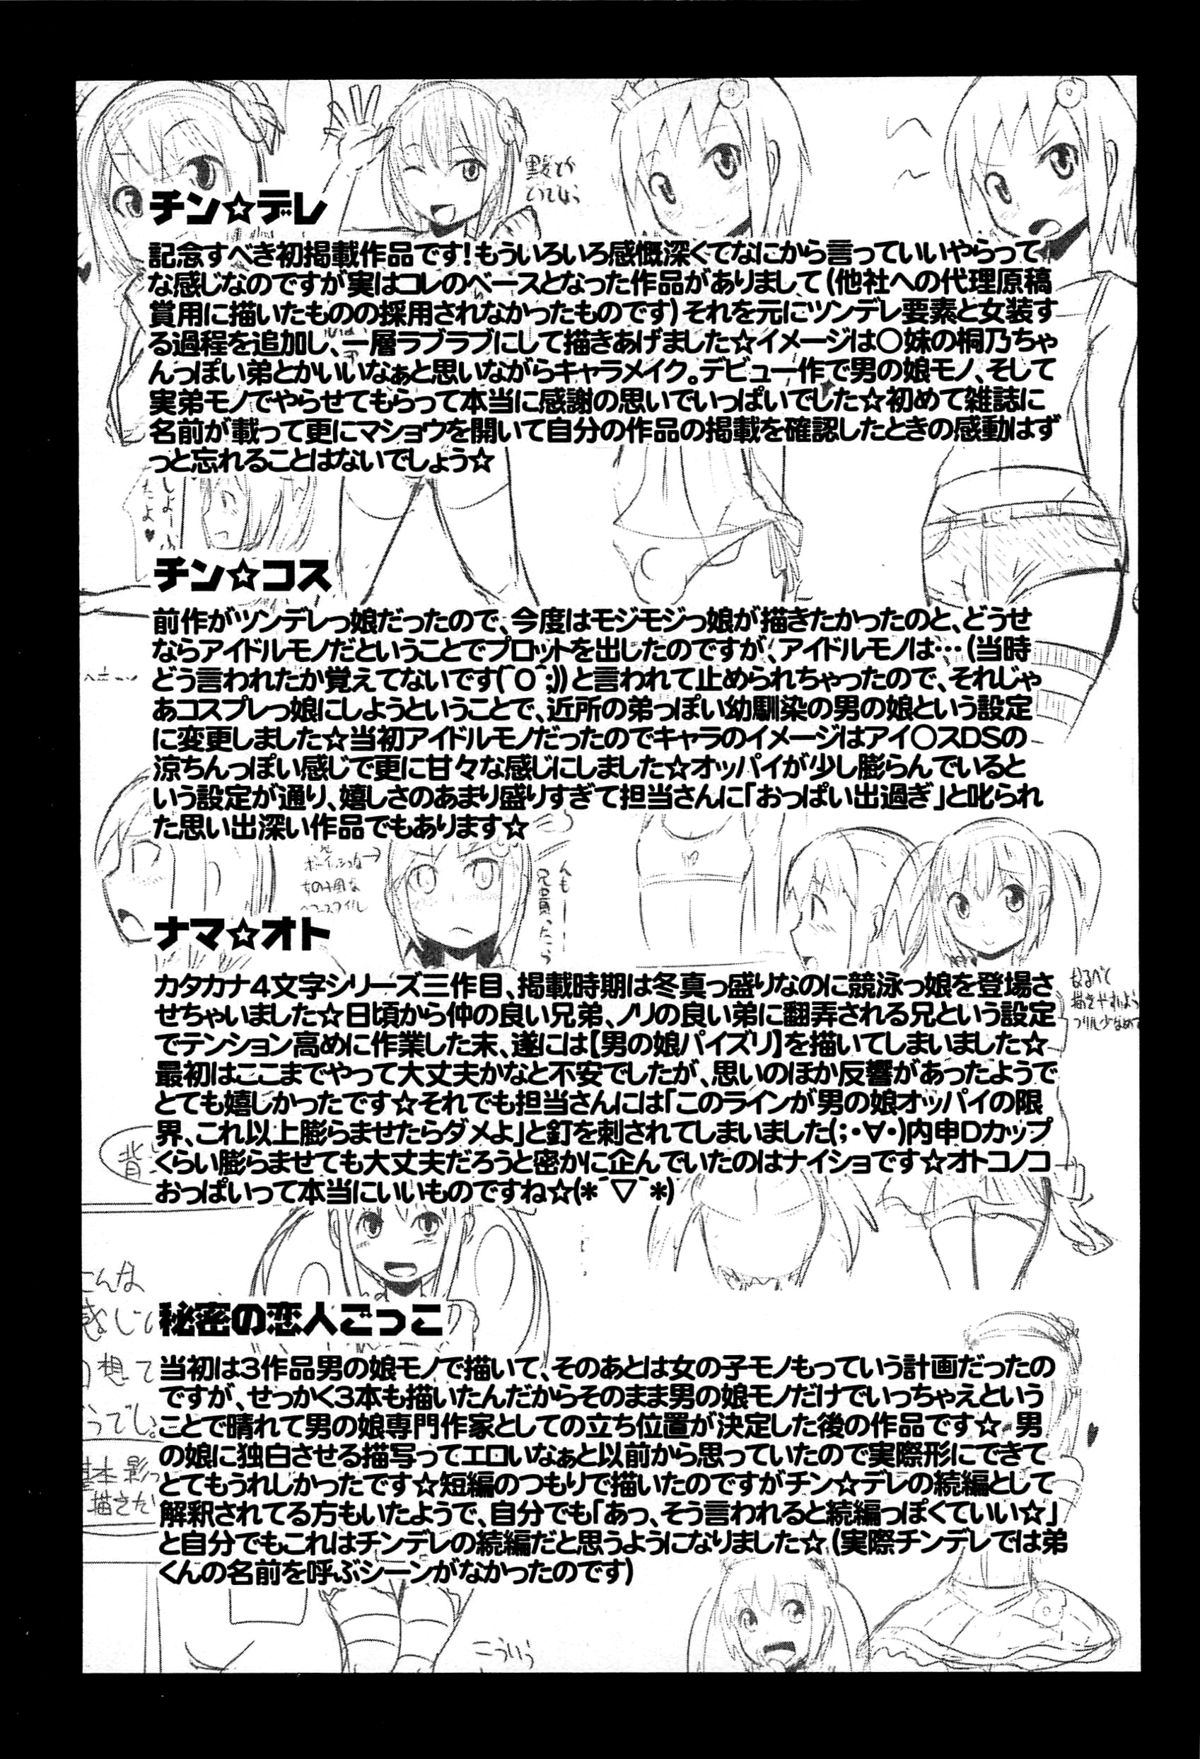 チン☆デレ
記念すべき初掲載作品です！もういろいろ感慨深くてなにから言っていいやらって
な感じなのですが実はコレのベースとなった作品がありまして(他社への代理原稿
賞用に描いたものの採用されなかったものです)それを元にツンデレ要素と女装す
る過程を追加し、一層ラブラブにして描きあげました☆イメージは〇妹の桐乃ちゃ
んっぽい弟とかいいなぁと思いながらキャラメイク。デビュー作で男の娘モノ、そして
実弟モノでやらせてもらって本当に感謝の思いでいっぱいでした☆初めて雑誌に
名前が載って更にマショウを開いて自分の作品の掲載を確認したときの感動はず
っと忘れることはないでしょう☆
チン☆コス
前作がツンデレっ娘だったので、今度はモジモジっ娘が描きたかったのと、どうせ
ならアイドルモノだということでプロットを出したのですが、アイドルモノは…(当時
どう言われたか覚えてないです(￣O￣;))と言われて止められちゃったので、それじゃ
あコスプレっ娘にしようということで、近所の弟っぽい幼馴染の男の娘という設定
に変更しました☆当初アイドルモノだったのでキャラのイメージはアイ〇スDSの
涼ちんっぽい感じで更に甘々な感じにしました☆オッパイが少し膨らんでいると
いう設定が通り、嬉しさのあまり盛りすぎて担当さんに「おっぱい出過ぎ」と叱られ
た思い出深い作品でもあります☆
ナマ☆オト
カタカナ4文字シリーズ三作目、掲載時期は冬真っ盛りなのに競泳っ娘を登場さ
せちゃいました☆日頃から仲の良い兄弟、ノリの良い弟に翻弄される兄という設定
でテンション高めに作業した末、遂には【男の娘パイズリ】を描いてしまいました☆
最初はここまでやって大丈夫かなと不安でしたが、思いのほか反響があったようで
とても嬉しかったです☆それでも担当さんには「このラインが男の娘オッパイの限
界、これ以上膨らませたらダメよ」と釘を刺されてしまいました(；・∀・)内申Dカップ
くらい膨らませても大丈夫だろうと密かに企んでいたのはナイショです☆オトコノコ
おっぱいって本当にいいものですね☆(*￣▽￣*)
秘密の恋人ごっこ
当初は3作品男の娘モノで描いて、そのあとは女の子モノもっていう計画だったの
ですが、せっかく3本も描いたんだからそのまま男の娘モノだけでいっちゃえという
ことで晴れて男の娘専門作家としての立ち位置が決定した後の作品です☆ 男
の娘に独白させる描写ってエロいなぁと以前から思っていたので実際形にできて
とてもうれしかったです☆短編のつもりで描いたのですがチン☆デレの続編として
解釈されてる方もいたようで、自分でも「あっ、そう言われると続編っぽくていい☆」
と自分でもこれはチンデレの続編だと思うようになりました☆(実際チンデレでは弟
くんの名前を呼ぶシーンがなかったのです)
こういう